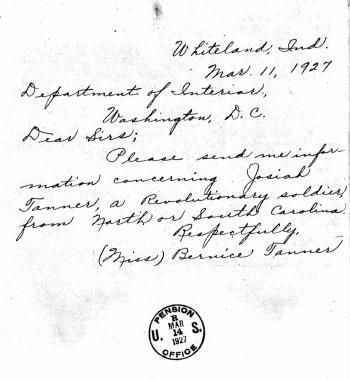 Whiteland, Ind.
Mar. 11, 1927
Department of Interior,
Washington, D.C.
Dear Sirs;
Please send me infor-
mation concerning Josiah
Tanner, a Revolutionary soldier
from North or South Carolina.
Respectfully,
(Miss) Bernice Tanner
PENSION
R
MAR
U. 14 S.
1927
OFFICE